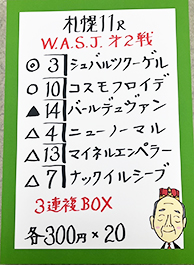 札幌11R
W.A.S.J. 才2戦
◎ 3 シュバルツクーゲル
○ 10 コスモフロイデ
▲ 14 バールデュヴァン
△ 4 ニューノーマル
△ 13 マイネルエンペラー
△ 7 ナックイルシーブ
3連複BOX
各300円×20